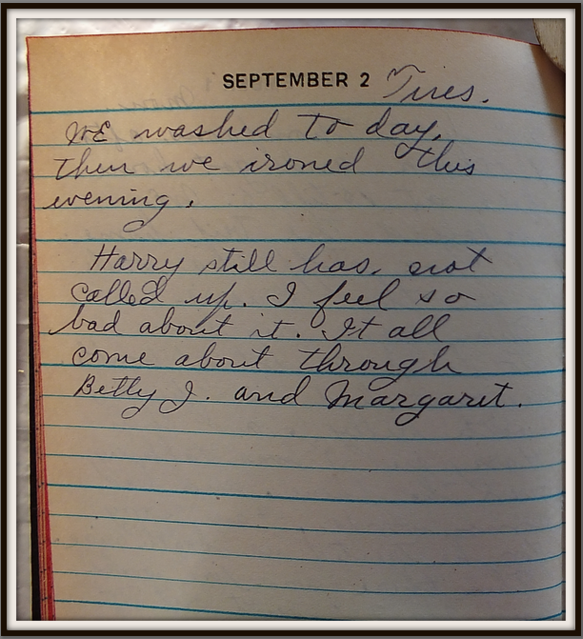 SEPTEMBER 2 Tues.
WE washed to day,
then we ironed this
evening.
Harry still has, not
called up. I feel so
bad about it. It all
come about through
Betty J. and Margaret.